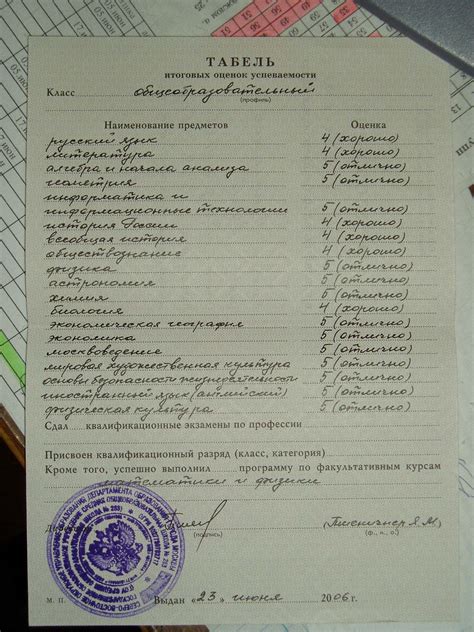 ТАБЕЛЬ
итоговых оценок успеваемости
Класс общеобразовательный
(профиль)
Наименование предметов Оценка
русский язык 4 (хорошо)
литература 4 (хорошо)
алгебра и начала анализа 5 (отлично)
геометрия 5 (отлично)
информатика и
информационные технологии 5 (отлично)
история России 4 (хорошо)
всеобщая история 4 (хорошо)
обществознание 4 (хорошо)
физика 5 (отлично)
астрономия 5 (отлично)
химия 5 (отлично)
биология 4 (хорошо)
экономическая география 5 (отлично)
экономика 5 (отлично)
москвоведение 5 (отлично)
мировая художественная культура 5 (отлично)
основы безопасности жизнедеятельности 5 (отлично)
иностранный язык (английский) 5 (отлично)
физическая культура 5 (отлично)
Сдал квалификационные экзамены по профессии
Присвоен квалификационный разряд (класс, категория)
Кроме того, успешно выполнил программу по факультативным курсам
математики и физики
(подпись) (ф., и., о.)
М. П. Выдан «23» июня 2006 г.